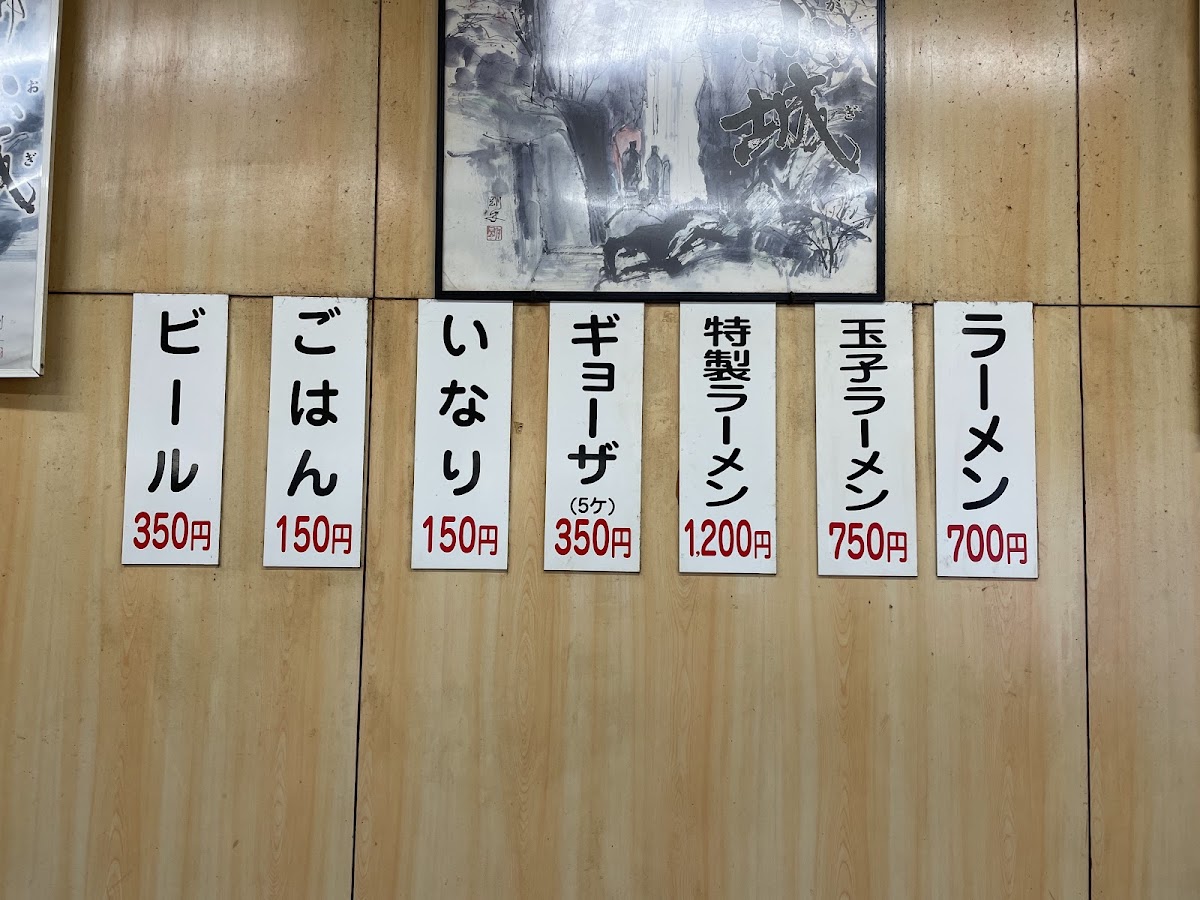 ラーメン
700円
玉子ラーメン
750円
特製ラーメン
1,200円
ギョーザ
(5ケ)
350円
いなり
150円
ごはん
150円
ビール
350円
城
ぎ
おぎ